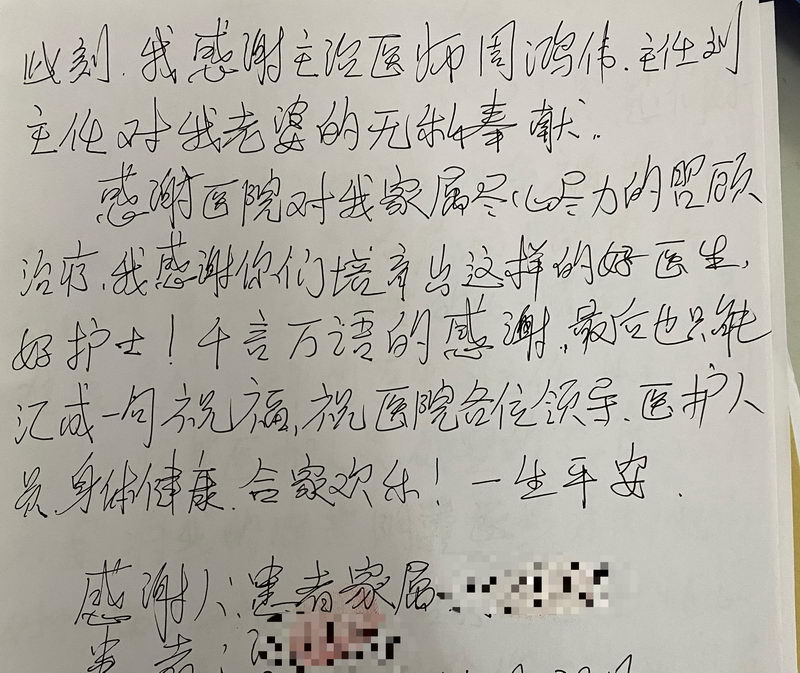 此刻.我感谢主治医师周鸿伟.主任刘
主任对我老婆的无私奉献.
感谢医院对我家属尽心尽力的照顾
治疗.我感谢你们培育出这样的好医生,
好护士!千言万语的感谢,最后也只能
汇成一句祝福,祝医院各位领导、医护人
员.身体健康.合家欢乐!一生平安.
感谢人:患者家属
患者: